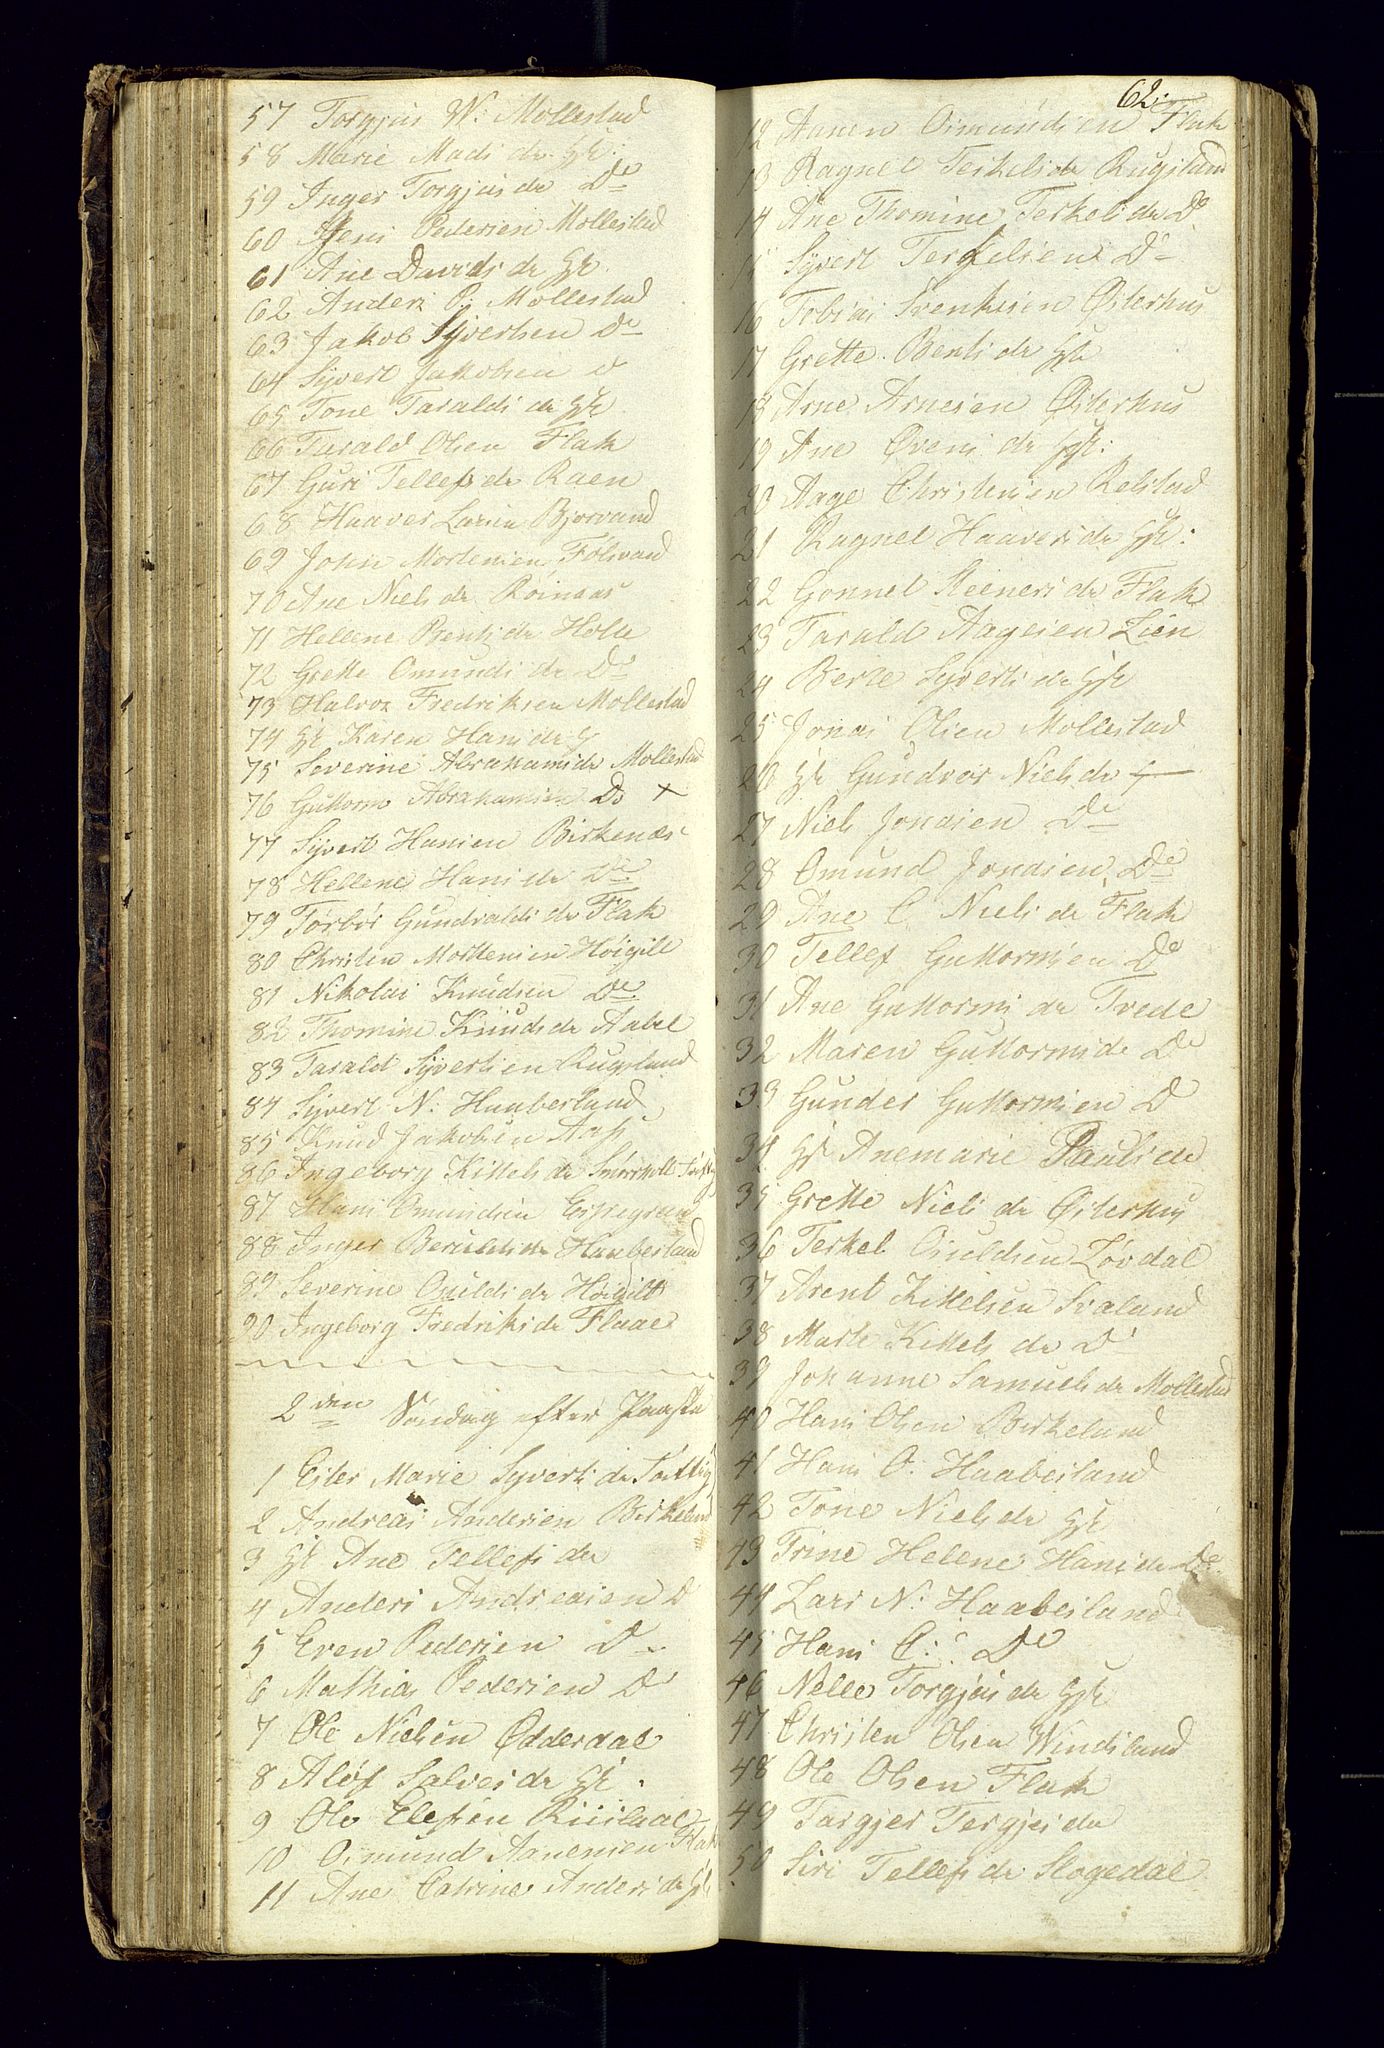 57 Torgjus W: Mollestad
58 Marie Mads dr. H K:
59 Inger Torgjus dr Do
60 Jens Pedersen Mollestad
61 Ane Davids dr H K.
62 Anders P: Mollestad
63 Jakob Syvertsen Do
64 Syvert Jakobsen
65 Tone Taralds dr H K
66 Tarald Olsen Flak
67 Guri Tellefs dr Raen
68 Haaver Larsen Bjorvand
69 John Mortensen Folvand
70 Ane Niels dr Roinaas
71 Hellene Bents dr Holte
72 Grette Omunds dr Do
73 Halvor Fredriksen Mollestad
74 H K Karen Hans dr
75 Severine Abrahams dr Mollestad
76 Guttorm Abrahamsen Do x
77 Syvert Hansen Birkenæs
78 Hellene Hans dr Do
79 Torbør Gundvalds dr Flak
80 Christen Mortensen Höigilt
81 Nikolai Knudsen Do
82 Thomine Knuds dr Aabel
83 Tarald Syvertsen Rugsland
84 Syvert N: Haabesland
85 Knud Jakobsen Aas
86 Ingeborg Kittels dr
87 Hans Omundsen Espegran
88 Inger Berulds dr Haabesland
89 Severine Oulds dr Höigilt
90 Ingeborg Fredriks dr Flaae
2den Søndag efter Paaske
1 Ester Marie Syverts dr
2 Andreas Andersen Birkeland
3 H K Ane Tellefs dr
4 Anders Andreasen D
5 Even Pedersen Do
6 Mathias Pedersen Do
7 Ole Nielsen Odderdal
8 Aløf Salves dr H K.
9 Ole Elefsen Riislaae
10 Osmund Aanensen Flak
11 Ane Catrine Anders dr H K
62.
12 Aanen Osmundsen Flak
13 Ragnel Terkels dr Rugsland
14 Ane Thomine Terkels dr Do
15 Syvert Terkelsen Do
16 Tobias Svenhsen Østerhus
17 Grette Bents dr H K
18 Arne Arnesen Østerhus
19 Ane Ovens dr H K:
20 Aage Christensen Retstad
21 Ragnel Haavers dr H K:
22 Gonnel Steeners dr Flak
23 Tarald Aagesen Lien
24 Berte Syverts dr H K
25 Jonas Olsen Mollestad
26 H K Gundvor Niels dr
27 Niels Jonasen Do
28 Omund Jonasen Do
29 Ane C. Niels dr Flak
30 Tellef Guttormsen Do
31 Ane Guttorms dr Tvede
32 Maren Guttorms dr Do
33 Gunder Guttormsen D
34 H K Anemarie Pauls dr
35 Grette Niels dr Østerhus
36 Terkel Ouldsen Løvdal
37 Arent Kittelsen Svaland
38 Marte Kittels dr Do
39 Johanne Samuels dr Mollestad
40 Hans Olsen Birkeland
41 Hans O: Haabesland
42 Tone Niels dr H K
43 Trine Helene Hans dr Do
44 Lars N: Haabesland
45 Hans C: Do
46 Nelle Torgjus dr H K
47 Christen Olsen Windsland
48 Ole Olsen Flak
49 Targjer Tergjes dr
50 Siri Tellefs dr Slogedal